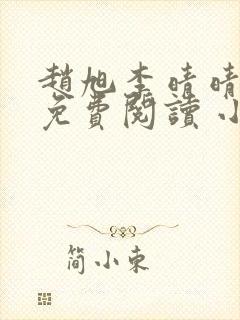 趙旭李晴晴
免費閱讀 小
简小東